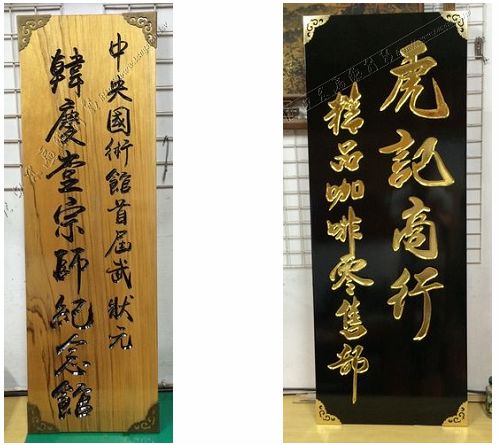 中央國術館首屆武狀元
韓慶堂宗師紀念館
虎記商行
精品咖啡零售部